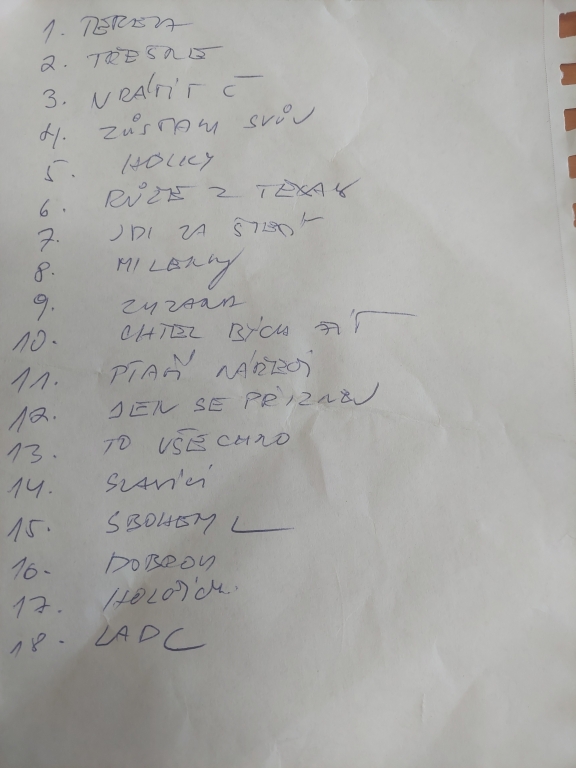 1. TEREZA
2. TŘEŠNĚ
3. VRÁTIT Č
4. ZŮSTAŇ SVŮJ
5. HOLKY
6. RŮŽE Z TEXASU
7. JDI ZA ŠTĚST
8. MILENKY
9. ZUZANA
10. CHTĚL BYCH ŽÍT
11. PTAČÍ NÁŘEČÍ
12. JEN SE PŘIZNEJ
13. TO VŠECHNO
14. SLAVÍCI
15. SBOHEM L
16. DOBROU
17. HOLOŠICH.
18. LADC